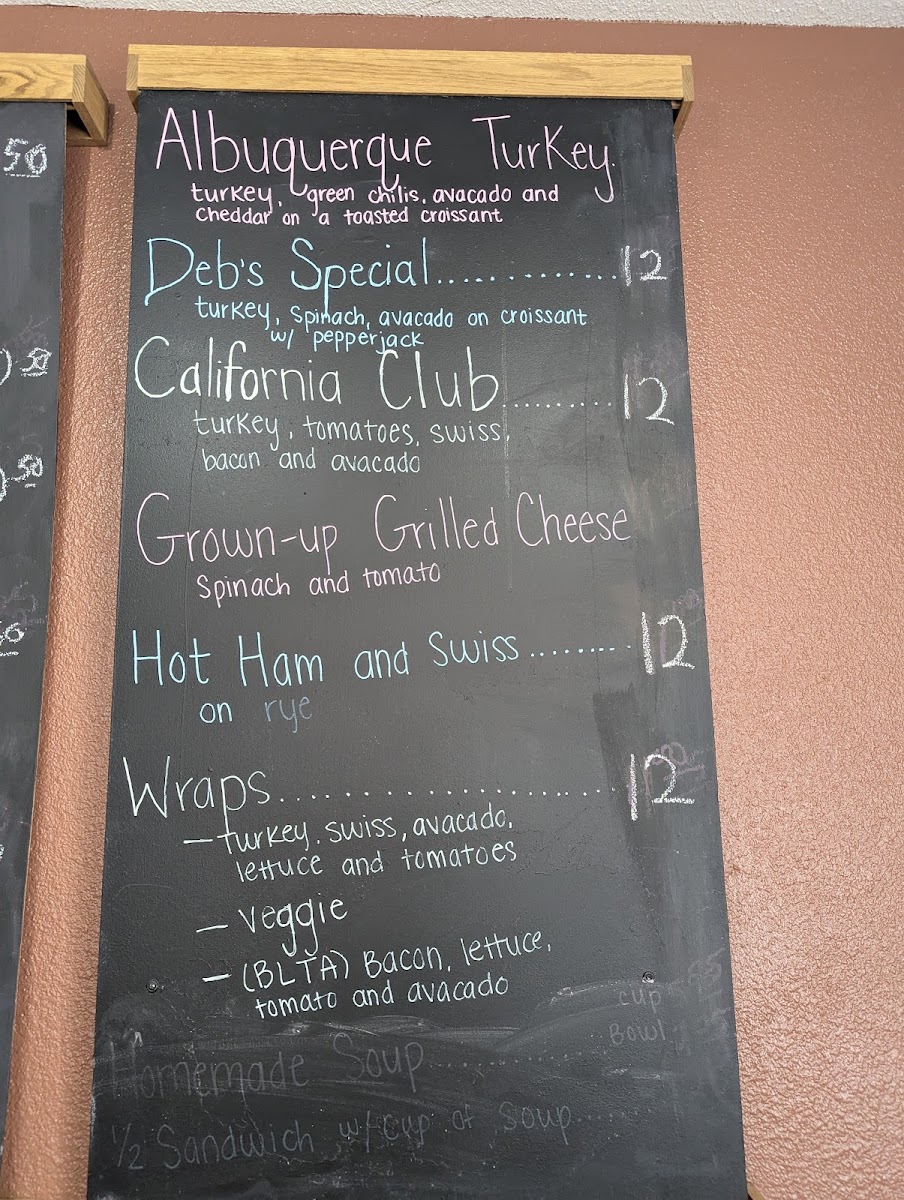 Albuquerque Turkey.
turkey, green chilis, avacado and
cheddar on a toasted croissant
Deb's Special.............12
turkey, spinach, avacado on croissant
w/ pepperjack
California Club.........12
turkey, tomatoes, swiss,
bacon and avacado
Grown-up Grilled Cheese
Spinach and tomato
Hot Ham and Swiss.........12
on rye
Wraps....................12
- turkey, swiss, avacado,
lettuce and tomatoes
- veggie
- (BLTA) Bacon, lettuce,
tomato and avacado
cup
Bowl
Homemade Soup...........
1/2 Sandwich w/ cup of soup......
50
50
.50